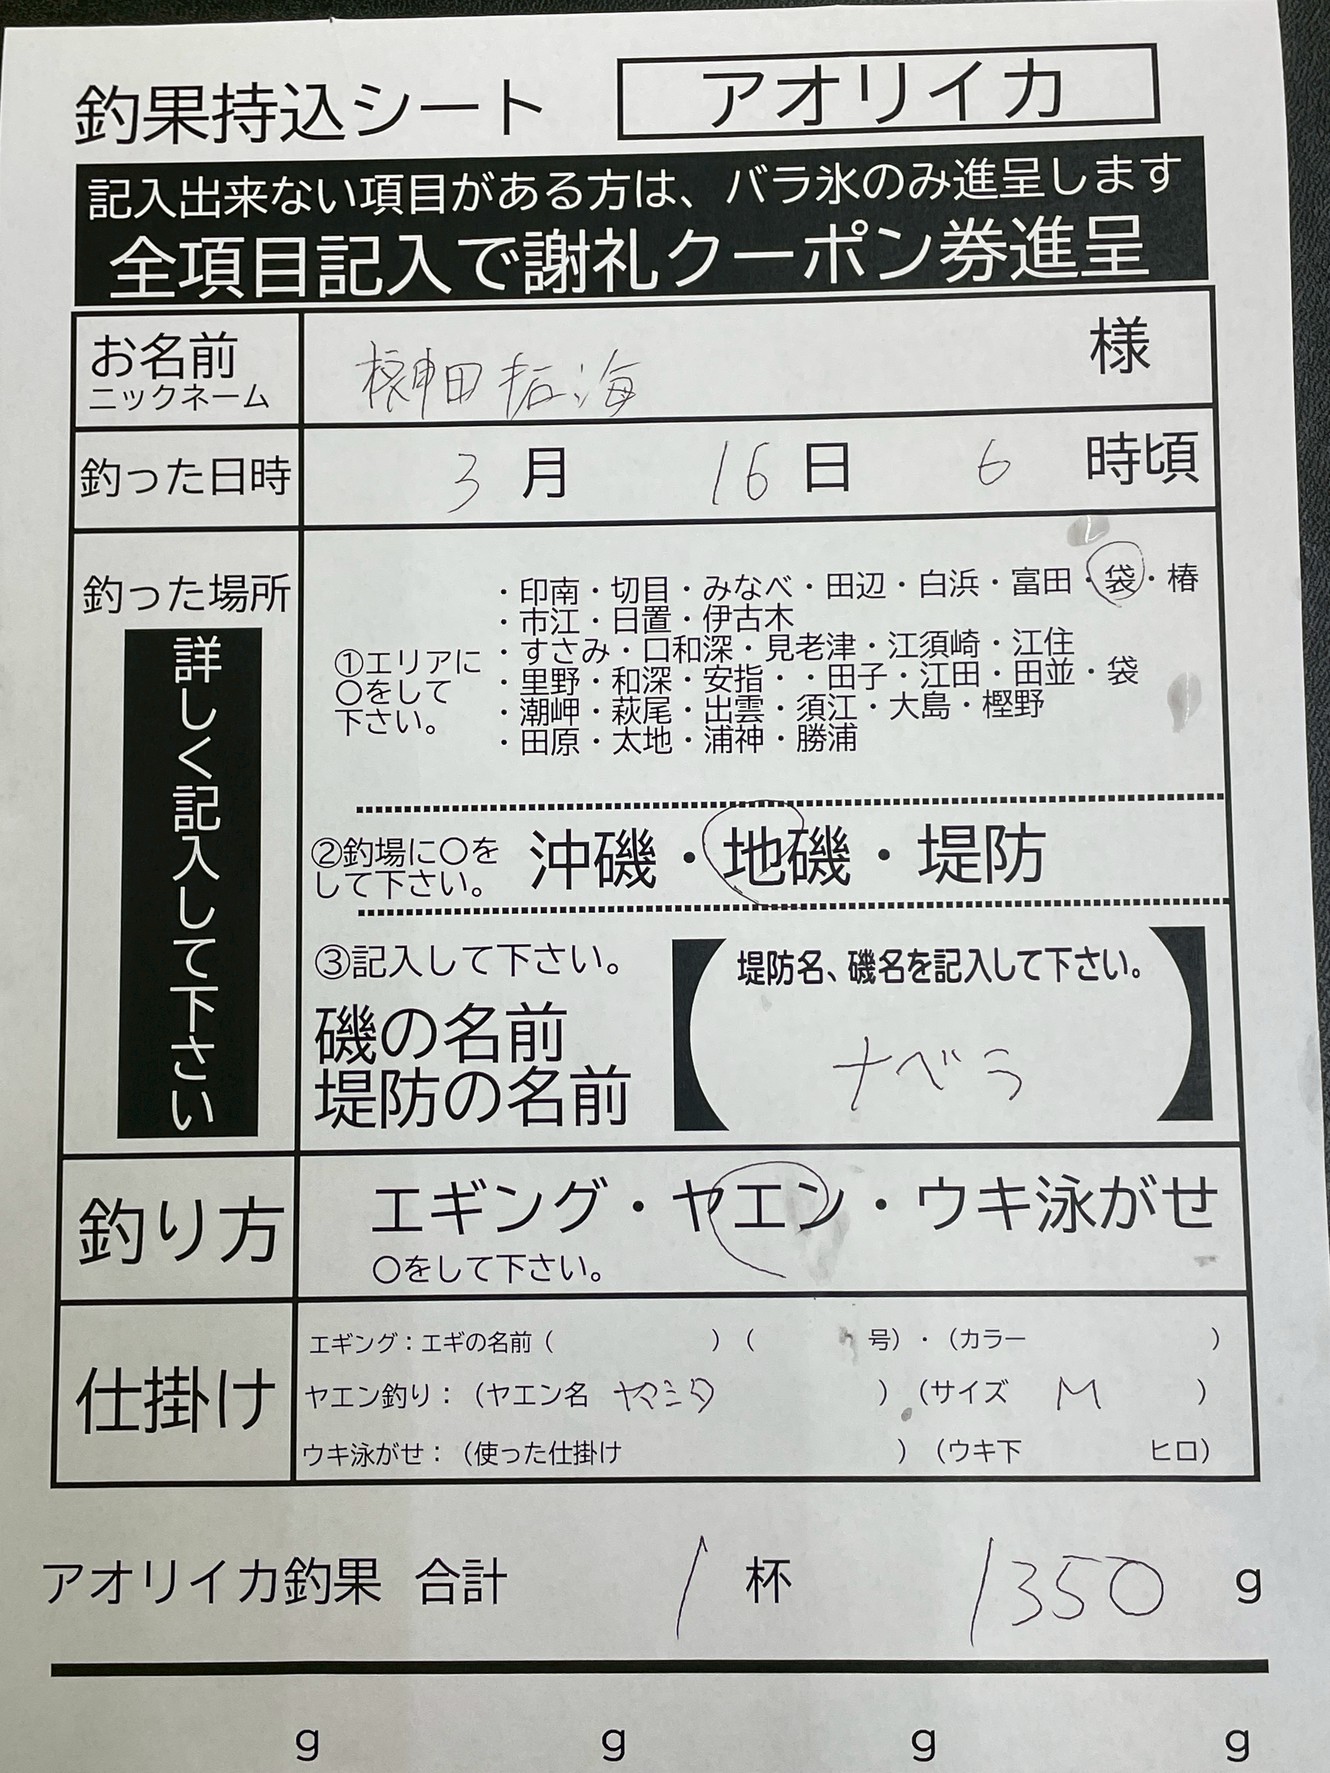 釣果持込シート
アオリイカ
記入出来ない項目がある方は、バラ氷のみ進呈します
全項目記入で謝礼クーポン券進呈
お名前
ニックネーム
田 海 様
釣った日時
3月 16日 6時頃
釣った場所
詳しく記入して下さい
①エリアに
〇をして
下さい。
・印南・切目・みなべ・田辺・白浜・富田・袋・椿
・市江・日置・伊古木
・すさみ・口和深・見老津・江須崎・江住
・里野・和深・安指・・田子・江田・田並・袋
・潮岬・萩尾・出雲・須江・大島・樫野
・田原・太地・浦神・勝浦
②釣場に〇を
して下さい。
沖磯・地磯・堤防
③記入して下さい。
磯の名前
堤防の名前
堤防名、磯名を記入して下さい。
ナベラ
釣り方
エギング・ヤエン・ウキ泳がせ
〇をして下さい。
仕掛け
エギング：エギの名前（　）（　号）・（カラー　）
ヤエン釣り：（ヤエン名 ヤマシタ ）（サイズ M ）
ウキ泳がせ：（使った仕掛け　）（ウキ下　ヒロ）
アオリイカ釣果 合計 1杯 1350g
g g g g